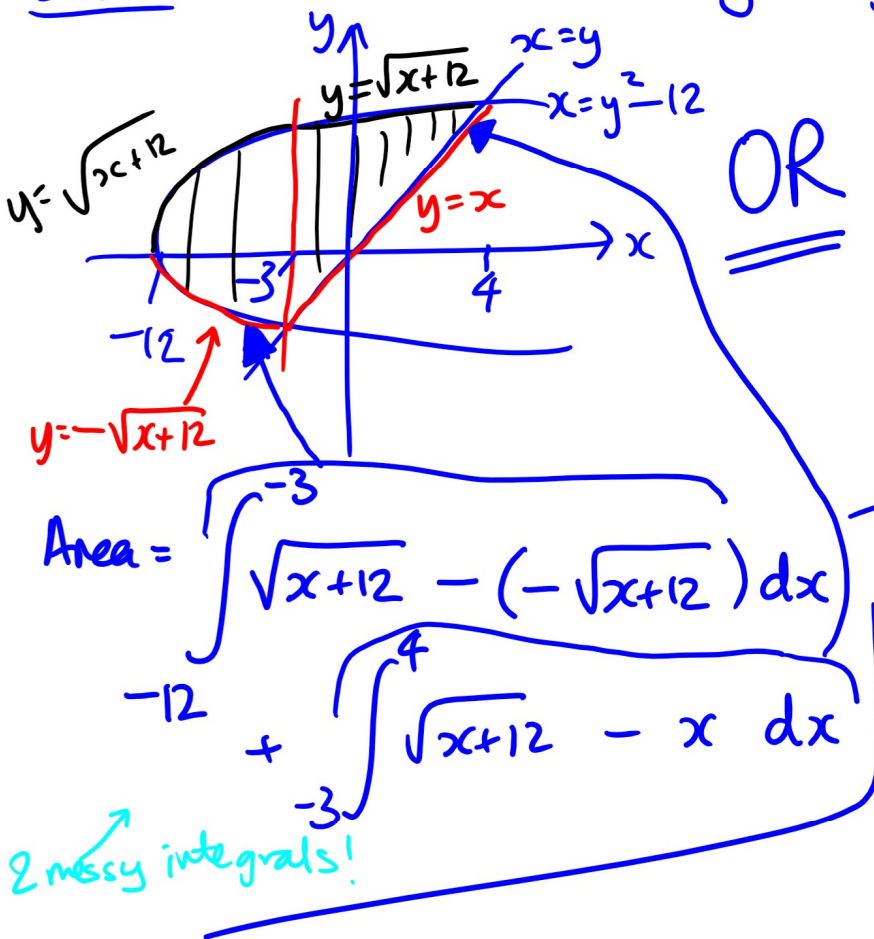 y
x=y
y=√(x+12)
x=y²-12
y=√(x+12)
OR
y=x
x
-3
4
-12
y=-√(x+12)
Area = ∫_{-12}^{-3} √(x+12) - (-√(x+12)) dx
+ ∫_{-3}^{4} √(x+12) - x dx
2 messy integrals!